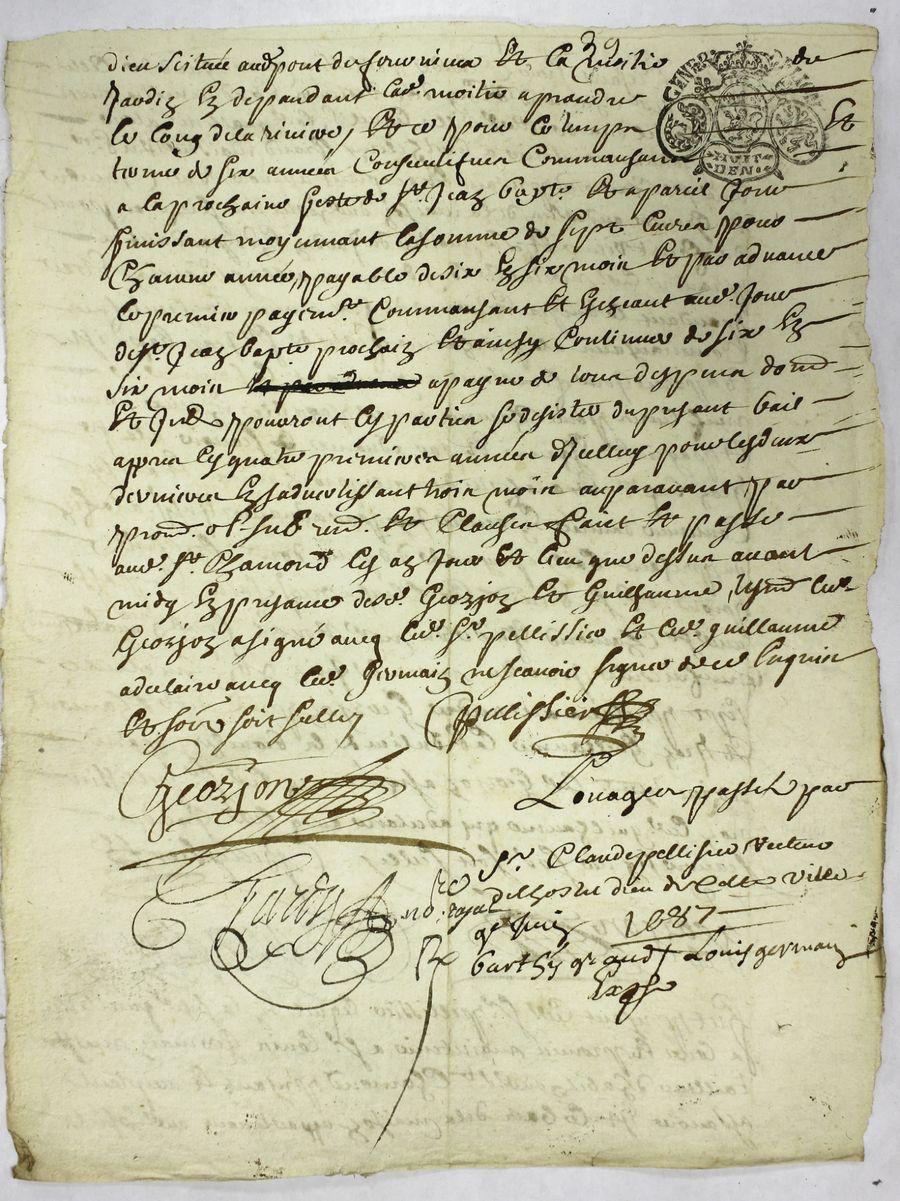 dieu scituée aud. pont de et la moitie de
jardin en dependant lad. moitie a prandre
le long de la riviere, et ce pour le temps et
terme de six années consecutifues commansant
a la prochaine feste de St. Jean bapte. et a pareil jour
finissant moyennant la somme de sept livres pour
chacune année, payable de six en six mois et par advance
le premier payemt. commansant et escheant aud. jour
de St. Jean bapte. prochain et ainsy continuer de six en
six mois a payne de tous despens dom.
et pourront les parties se desister du present bail
appres les quatre premieres années d'icelluy pour les deux
dernieres en s'advertissant trois mois auparavant, par
prom. obl. sub. ren. et clauses faict et passé
aud. St. Chamond les an jour et lieu que dessus avant
midy en presance desd. Georjon et Guilhaume, led.
Georjon a signé avecq led. Sr. pellissier et led. guillaume
adclaire avecq led. Germain ne scavoir signer de ce enquis
et soit scellé
Pelissier
Georjon
Louages passés par
Sr. Claude pellisier recteur
de l'hostel dieu de ville
Tardy no. re royal
1687
Louis germain
GENER
HUIT
DEN